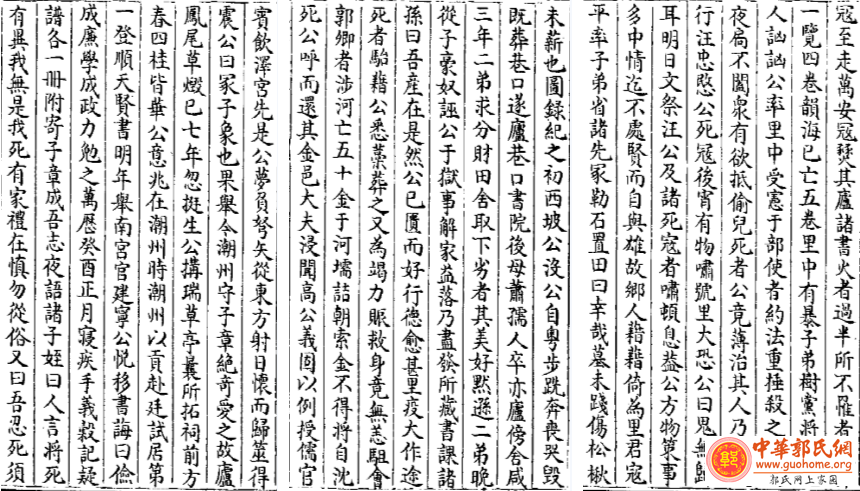 寇至走萬安寇㷊其廬諸書火者過半所不罹者
一覽四卷韻海已亡五卷里中有暴子弟樹黨將
人訩訩公率里中受憲于部使者約法重捶殺之
夜扃不闔衆有欲抵偷兒死者公竟薄治其人乃
行汪忠愍公死寇後宵有物嘯號里大恐公曰鬼無歸
耳明日文祭汪公及諸死寇者嘯頓息蓋公方物策事
多中情迄不處賢而自與雄故鄉人藉藉倚為里君寇
平率子弟省諸先冢勒石置田曰幸哉墓未踐傷松楸
未薪也圖錄紀之初西坡公沒公自粵步跣奔喪哭毀
既葬巷口遂廬巷口書院後母蕭孺人卒亦廬傍舍咸
三年二弟求分財田舍取下劣者其美好默遜二弟晚
從子豪奴誣公于獄事解家益落乃盡發所藏書課諸
孫曰吾產在是然公已匱而好行德愈甚里疫大作途
死者駘藉公悉藁葬之又為竭力賑救身竟無恙駔會
郭卿者涉河亡五十金于河壖詰朝索金不得將自沈
死公呼而還其金邑大夫浸聞高公義因以例授儒官
賓飲澤宮先是公夢負弩矢從東方射日懷而歸筮得
震公曰冢子象也果舉今潮州守子章絶奇愛之故廬
鳳尾草燬已七年忽挺生公搆瑞草亭曩所拓祠前方
春四桂皆華公意兆在潮州時潮州以貢赴廷試居第
一登順天賢書明年舉南宮官建寧公悅移書誨曰儉
成廉學成政力勉之萬曆癸酉正月寢疾手義穀記疑
譜各一冊附寄子章成吾志夜語諸子姪曰人言將死
有異我無是我死有家禮在慎勿從俗又曰吾忍死須
中華郭氏網
www.guohome.org
郭氏网上家園